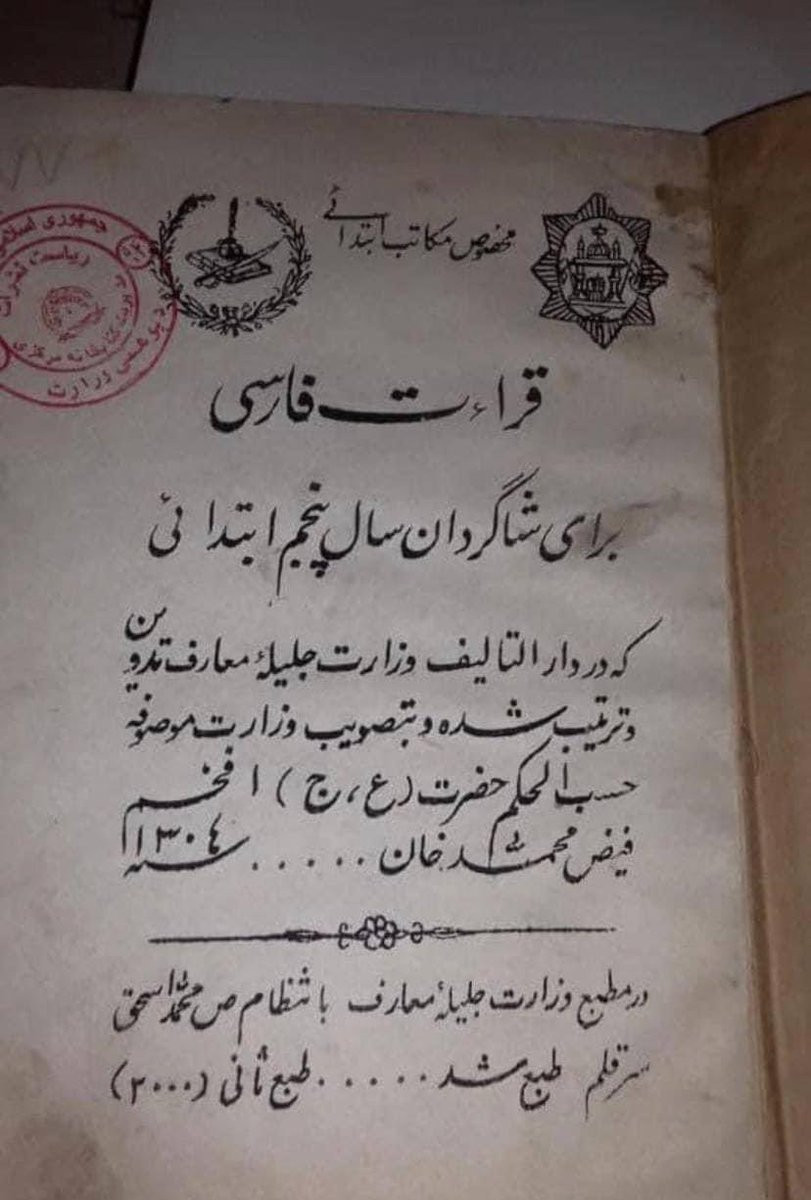 مخصوص مکاتب ابتدائے
جمهوری اسلامی
ریاست نشرات
کتابخانه مرکزی
وزارت
قراءت فارسی
برای شاگردان سال پنجم ابتدائی
که در دار التالیف وزارت جلیلهٔ معارف تدوین
و ترتیب شده و بتصویب وزارت موصوفه
حسب الحکم حضرت (ع، ج) ا فخم
فیض محمد خان ..... سنه ۱۳۰٤
در مطبع وزارت جلیلهٔ معارف با نتظام ص محمد اسحق
سر قلم طبع شد ..... طبع ثانی (۲۰۰۰)